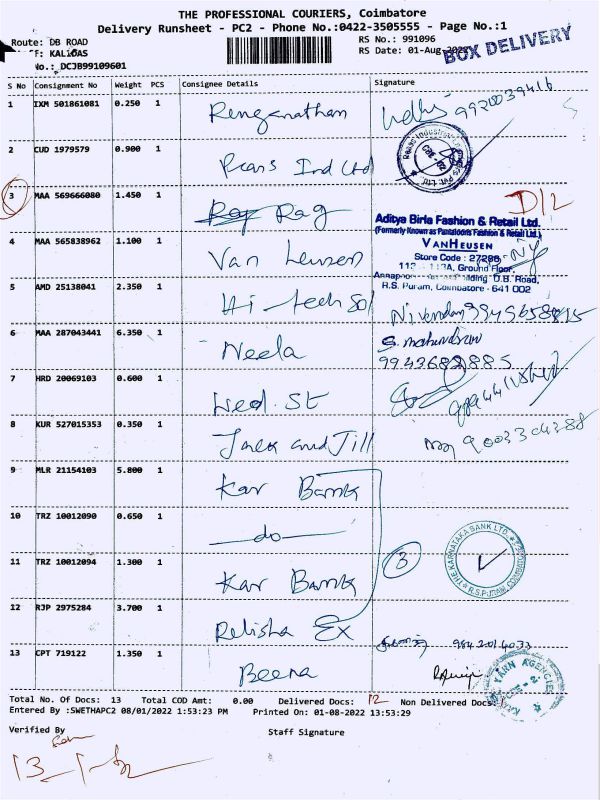 THE PROFESSIONAL COURIERS, Coimbatore
Delivery Runsheet - PC2 - Phone No.:0422-3505555 - Page No.:1
Route: DB ROAD
RS No.: 991096
F: KALIDAS
RS Date: 01-Aug-2022
BOX DELIVERY
No.: DCJB99109601
S No Consignment No Weight PCS Consignee Details Signature
1 IXM 501861081 0.250 1 Renganathan 9920039416
2 CUD 1979579 0.900 1 Pears Ind Ltd
3 MAA 569666080 1.450 1 Rag D/2
Aditya Birla Fashion & Retail Ltd.
(Formerly Known as Pantaloons Fashion & Retail Ltd.)
VANHEUSEN
4 MAA 565838962 1.100 1 Van heusen
Store Code : 27286
113 - 113A, Ground Floor,
D.B. Road,
R.S. Puram, Coimbatore - 641 002
5 AMD 25138041 2.350 1 Hi-tech Sol
6 MAA 287043441 6.350 1 Neela S. mahendran
7 HRD 20069103 0.600 1 Wed. St
8 KUR 527015353 0.350 1 Jack and Jill 9003304388
9 MLR 21154103 5.800 1 Kar Bank
10 TRZ 10012090 0.650 1 —do—
3
THE KARNATAKA BANK LTD.
R.S.PURAM, COIMBATORE
11 TRZ 10012094 1.300 1 Kar Bank
12 RJP 2975284 3.700 1 Relisha Ex 9842014033
13 CPT 719122 1.350 1 Beena
YARN AGENCIES
Total No. Of Docs: 13 Total COD Amt: 0.00 Delivered Docs: 12 Non Delivered Docs: 1
Entered By :SWETHAPC2 08/01/2022 1:53:23 PM Printed On: 01-08-2022 13:53:29
Verified By
Staff Signature